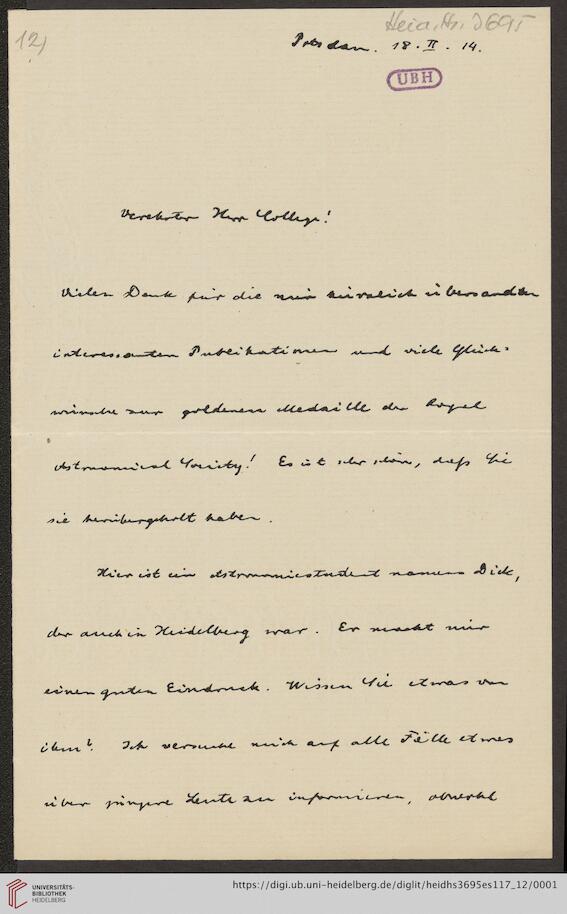 Heid. Hs. 3695
12)
Potsdam. 18. II. 14.
UBH
Verehrter Herr College!
Vielen Dank für die mir kürzlich übersandten
interessanten Publikationen und viele Glück-
wünsche zur goldenen Medaille der Royal
Astronomical Society! Es ist sehr schön, daß Sie
sie herübergeholt haben.
Hier ist ein Astronomiestudent namens Dick,
der auch in Heidelberg war. Er macht mir
einen guten Eindruck. Wissen Sie etwas von
ihm? Ich versuche mich auf alle Fälle etwas
über jüngere Leute zu informieren, obwohl
UNIVERSITÄTS-
BIBLIOTHEK
HEIDELBERG
https://digi.ub.uni-heidelberg.de/diglit/heidhs3695es117_12/0001